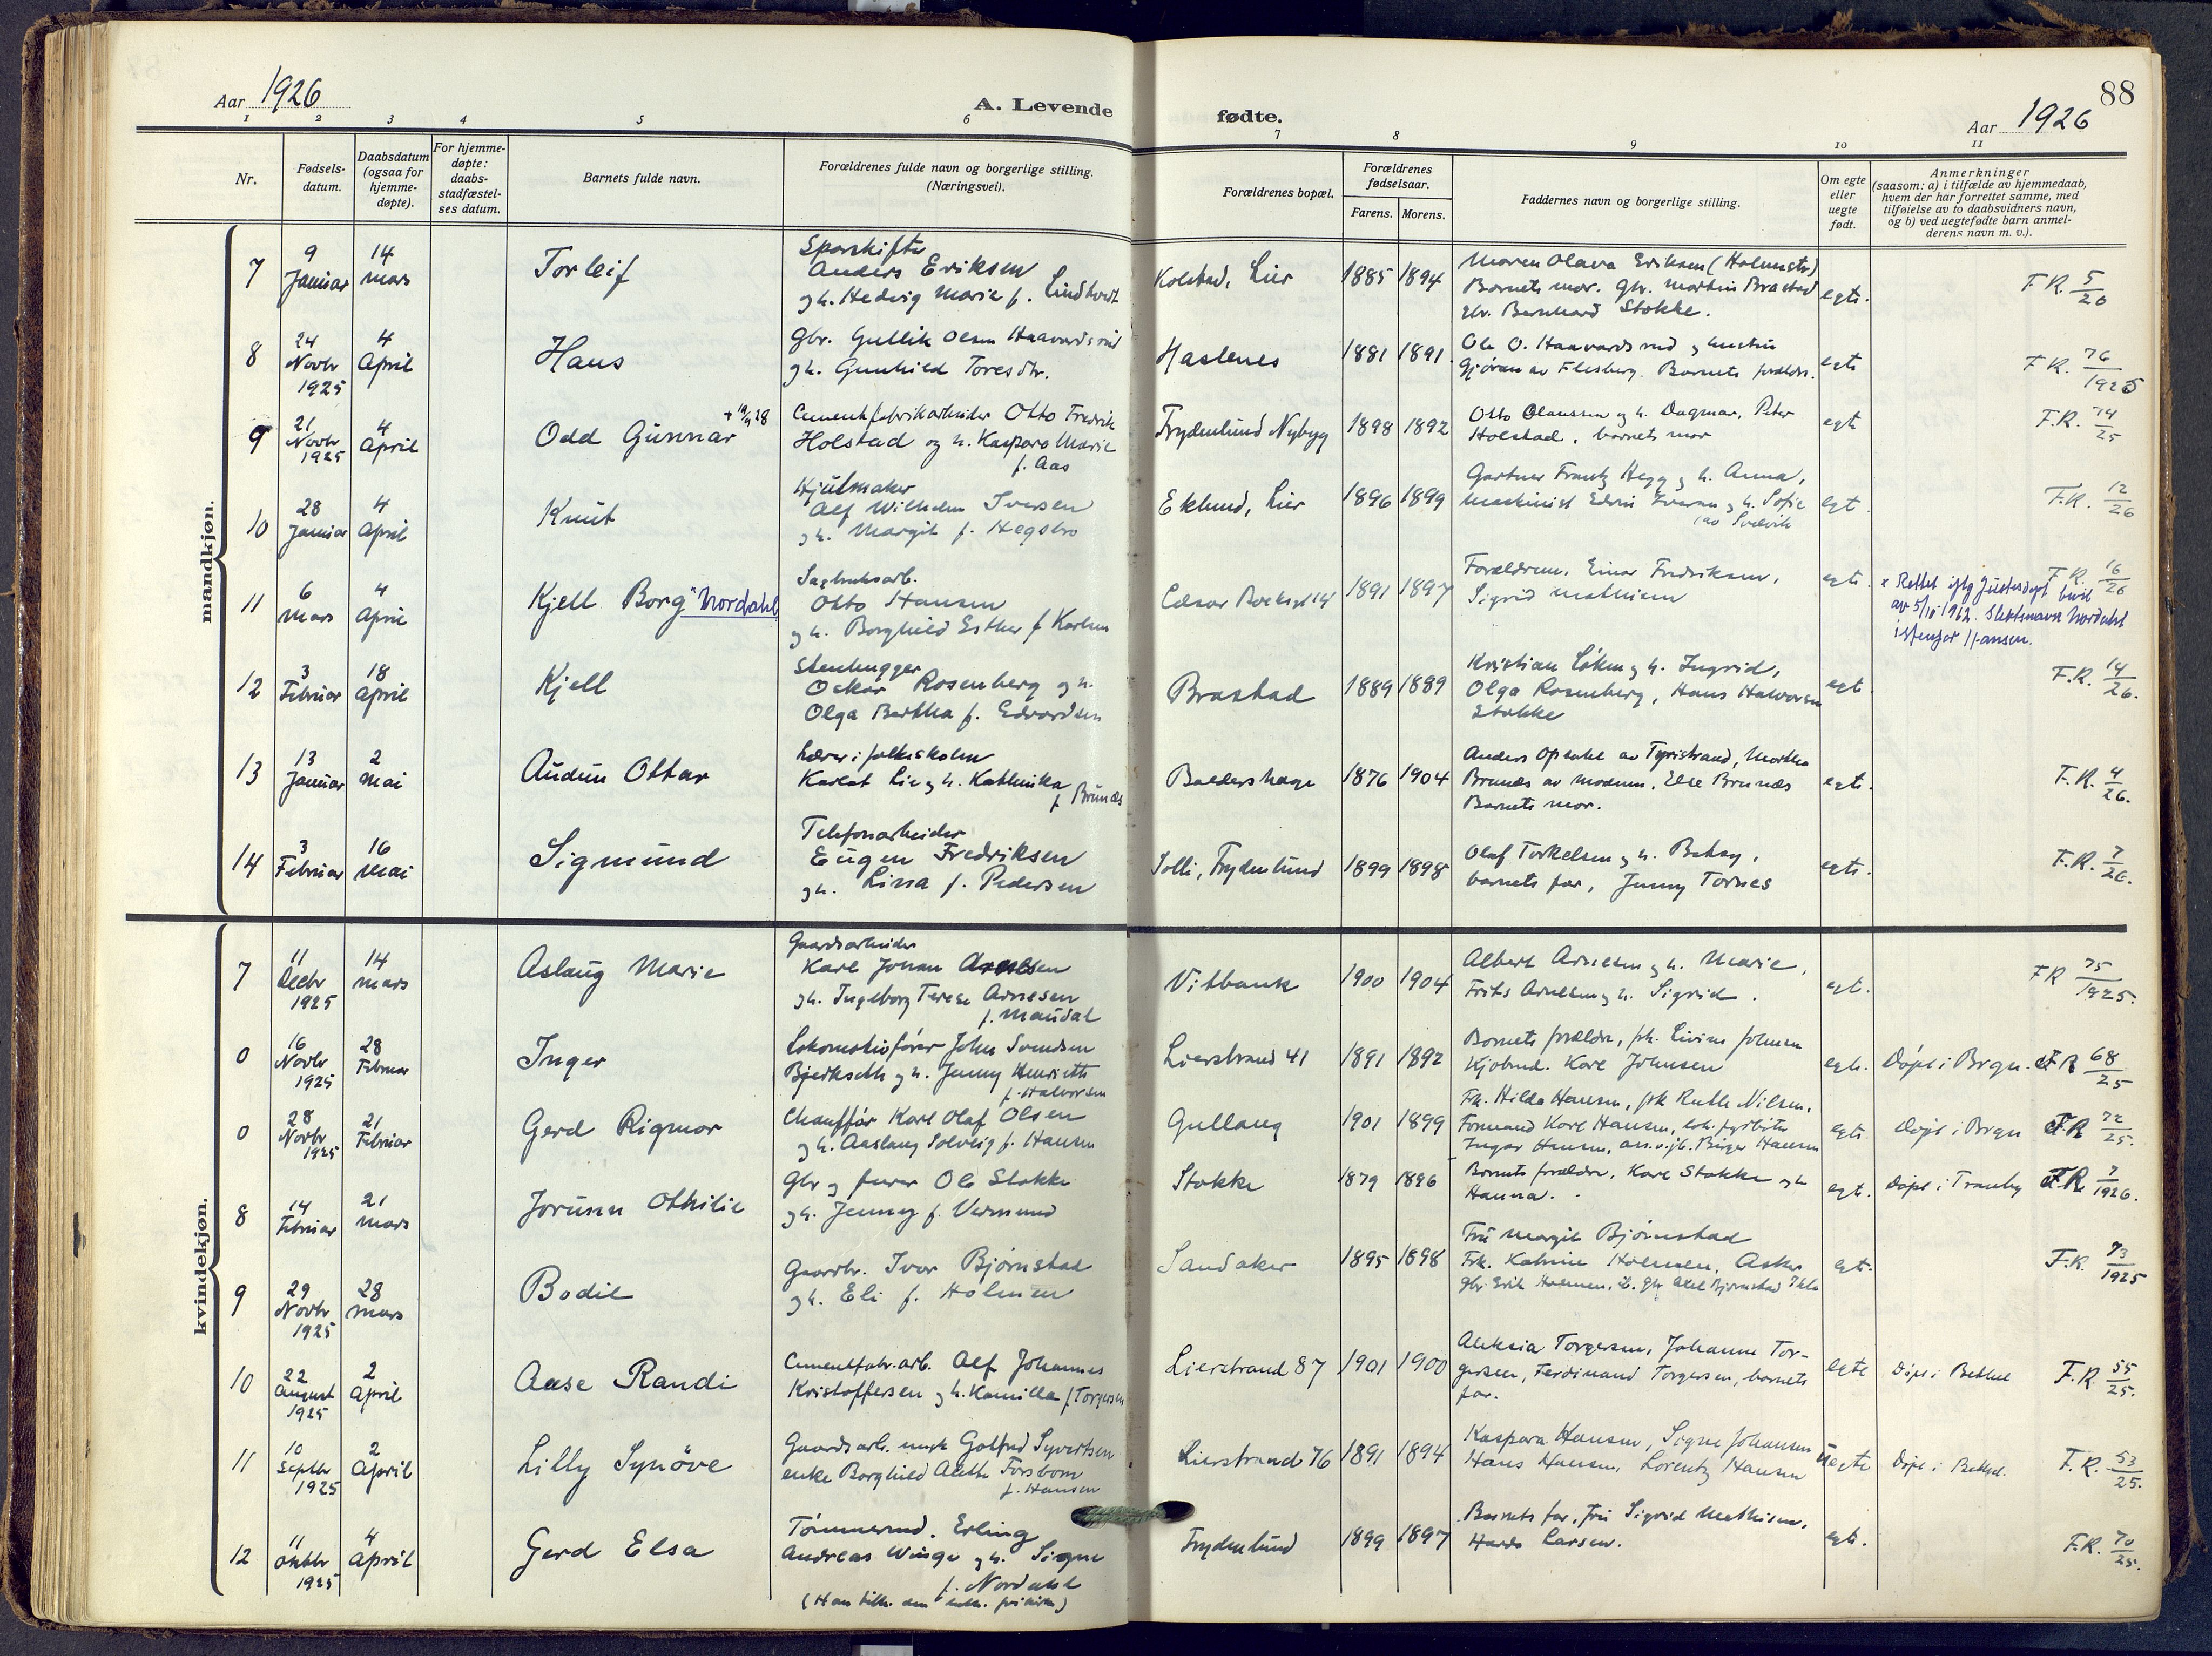 Aar 1926
A. Levende
fødte.
Aar 1926
88
1 2 3 4 5 6 7 8 9 10 11
Nr.
Fødsels-
datum.
Daabsdatum
(ogsaa for
hjemme-
døpte).
For hjemme-
døpte:
daabs-
stadfæstel-
ses datum.
Barnets fulde navn.
Forældrenes fulde navn og borgerlige stilling.
(Næringsvei).
Forældrenes bopæl.
Forældrenes
fødselsaar.
Farens. Morens.
Faddernes navn og borgerlige stilling.
Om egte
eller
uegte
født.
Anmerkninger
(saasom: a) i tilfælde av hjemmedaab,
hvem der har forrettet samme, med
tilføielse av to daabsvidners navn,
og b) ved uegtefødte barn anmel-
derens navn m. v.).
mandkjøn.
7
9
Januar
14
mars
Torleif
Sporskifter
Anders Eriksen
og h. Hedvig Marie f. Lindtvedt
Kolstad, Lier
1885 1894
Maren Olava Eriksen (Holmstr)
Barnets mor. Gbr. Martin Brastad
gbr. Bernhard Stokke.
egte.
F.R. 5/26
8
24
Novbr
1925
4
April
Hans
Gbr. Gullik Olsen Haavardsrud
og h. Gunhild Toresdtr.
Haslenes
1881 1891
Ole O. Haavardsrud og hustru
Gjøran av Flesberg. Barnets forældre.
egte
F.R. 76/1925
9
21
Novbr
1925
4
April
Odd Gunnar
Cementfabrikarbeider Otto Fredrik
Holstad og h. Kaspara Marie
f. Aas
Frydenlund Nybyg
1898 1892
Otto Olaussen og h. Dagmar, Peter
Holstad, barnets mor
egte
F.R. 74/25
10
28
Januar
4
April
Knut
Hjulmaker
Alf Wilhelm Iversen
og h. Margit f. Hegsbro
Eklund, Lier
1896 1899
Gartner Frantz Hegg og h. Anna,
Maskinist Edvin Iversen og h. Sofie
av Svelvik
egt.
F.R. 12/26
11
6
Mars
4
April
Kjell Borg x Nordahl
Sagbruksarb.
Otto Hansen
og h. Borghild Esther f. Karlsen
1891 1897
Forældrene, Einar Fredriksen,
Sigrid Mathisen
egte.
F.R. 16/26
x Rettet iflg Justisdept bevil
av 5/10-1962. Slektsnavn Nordahl
istenfor Hansen.
12
3
Februar
18
April
Kjell
Stenhugger
Oskar Rosenberg og h.
Olga Bertha f. Edvardsen
Brastad
1889 1889
Kristian Løken og h. Ingrid,
Olga Rosenberg, Hans Halvorsen
Stokke
egte.
F.R. 14/26.
13
13
Januar
2
Mai
Audun Ottar
Lærer i folkeskolen
Karlot Lie og h. Kathinka
f. Brunæs
Baldershage
1876 1904
Anders Opsahl av Tyristrand, Martha
Brunæs av Modum, Else Brunæs
Barnets mor.
egte.
F.R. 4/26.
14
3
Februar
16
Mai
Sigmund
Telefonarbeider
Eugen Fredriksen
og h. Lina f. Pedersen
Solli, Frydenlund
1899 1898
Olaf Torkelsen og h. Betsy,
barnets far, Jenny Tornes
egte.
F.R. 7/26.
kvindekjøn.
7
11
Decbr
1925
14
mars
Aslaug Marie
Gaardsarbeider
Karl Johan Arnesen
og h. Ingeborg Terese Arnesen
f. Maudal
Vitbank
1900 1904
Albert Arnesen og h. Marie,
Frits Arnesen og h. Sigrid.
egt.
F.R 75/1925.
0
16
Novbr
1925
28
Februar
Inger
Lokomotivfører John Svendsen
Bjerkseth og h. Jenny Henriette
f. Halvorsen
Lierstrand 41
1891 1892
Barnets forældre, frk. Livine Johnsen
Karl Johnsen
egte.
Døpt i Brgn. F.R 68/25
0
28
Novbr
1925
21
Februar
Gerd Rigmor
Chauffør Karl Olaf Olsen
og h. Aaslaug Solveig f. Hansen
Gullaug
1901 1899
Frk. Hilda Hansen, frk Ruth Nilsen,
Formand Karl Hansen,
Ingar Hansen, Birger Hansen
egte
Døpt i Brgn F.R 72/25.
8
14
Februar
21
mars
Jorunn Othilie
Gbr og Ole Stokke
og h. Jenny f. Vermund
Stokke
1879 1896
Barnets forældre, Karl Stokke og h
Hanna.
egt.
Døpt i Tranby F.R. 7/1926.
9
29
Novbr
1925
28
mars
Bodil
Gaardbr. Ivar Bjørnstad
og h. Eli f. Holmen
Sandaker
1895 1898
Fru Margit Bjørnstad
Frk. Katrine Holmen, Asker
gbr. Erik Holmen, Axel Bjørnstad
egt.
F.R. 73/1925
10
22
August
1925
2
April
Aase Randi
Cementfabr.arb. Alf Johannes
Kristoffersen og h. Kamilla f. Torgersen
Lierstrand 87
1901 1900
Aleksia Torgersen, Johanne Tor-
gersen, Ferdinand Torgersen, barnets
far.
egte
Døpt i Bethel F.R. 55/25.
11
10
Septbr
1925
2
April
Lilly Synøve
Gaardsarb. ungk Gotfred Syvertsen
enke Borghild Alette Forsbom
f. Hansen
Lierstrand 76
1891 1894
Kaspara Hansen, Signe Johansen
Hans Hansen, Lorentz Hansen
uegte
Døpt i Bethel. F.R. 53/25.
12
11
Oktbr
1925
4
April
Gerd Elsa
Tømmermd. Erling
Andreas Winge og h. Signe
f. Nordahl
Frydenlund
1899 1897
Barnets far, fru Sigrid Mathisen,
Larsen.
egt.
F.R. 70/25.